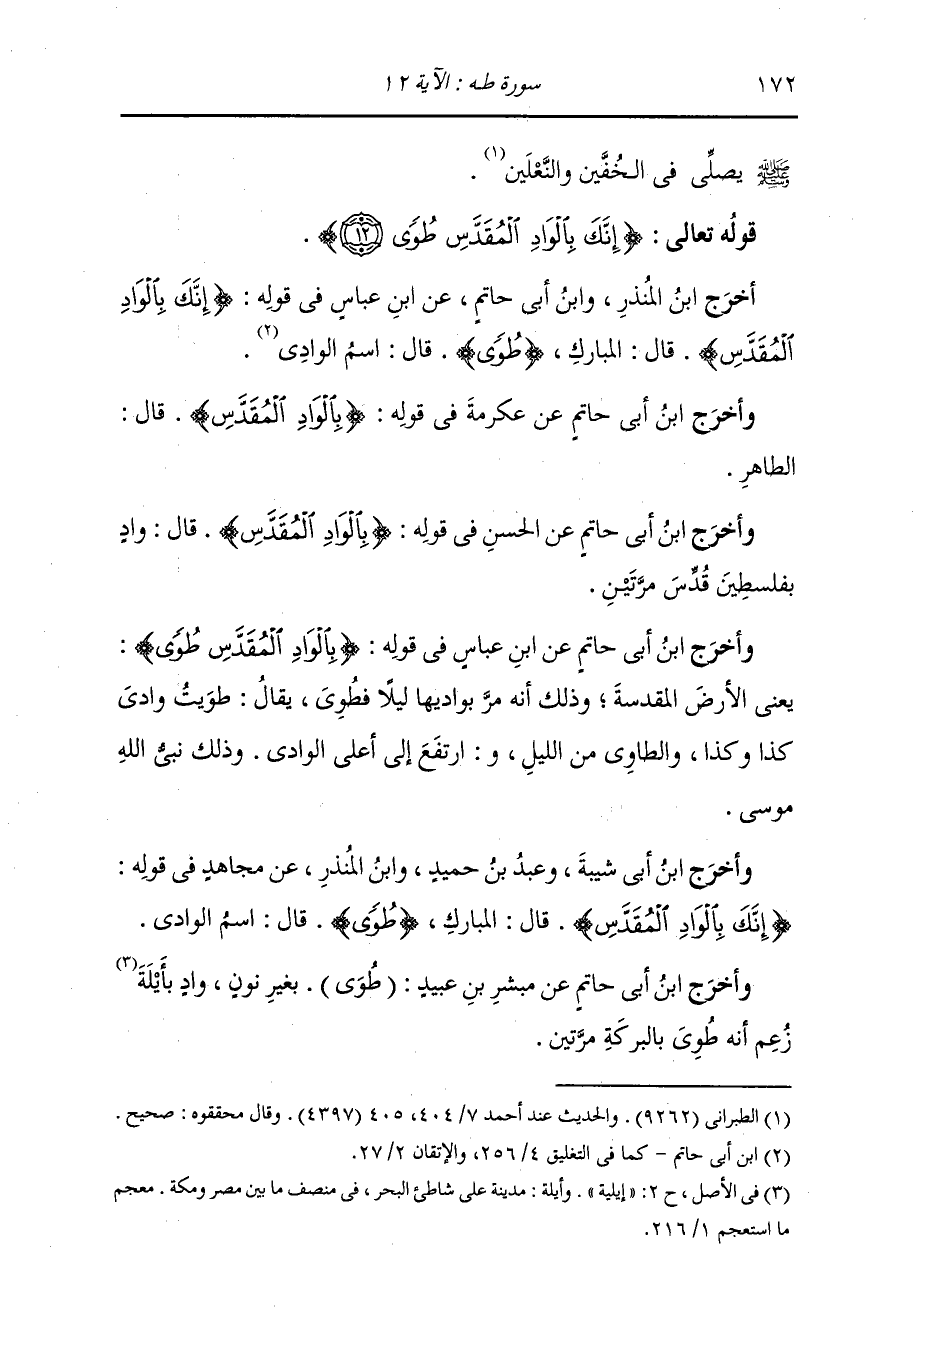 ١٧٢ سورة طه : الآية ١٢
ﷺ يصلِّى فى الخُفَّين والنَّعْلَين(١) .
قولُه تعالى : ﴿إِنَّكَ بِٱلْوَادِ ٱلْمُقَدَّسِ طُوًى ١٢﴾ .
أخرَج ابنُ المُنذرِ ، وابنُ أبى حاتمٍ ، عن ابنِ عباسٍ فى قولِه : ﴿إِنَّكَ بِٱلْوَادِ
ٱلْمُقَدَّسِ﴾ . قال : المباركِ ، ﴿طُوًى﴾ . قال : اسمُ الوادِى(٢) .
وأخرَج ابنُ أبى حاتمٍ عن عكرمةَ فى قولِه : ﴿بِٱلْوَادِ ٱلْمُقَدَّسِ﴾ . قال :
الطاهرِ .
وأخرَج ابنُ أبى حاتمٍ عن الحسنِ فى قولِه : ﴿بِٱلْوَادِ ٱلْمُقَدَّسِ﴾ . قال : وادٍ
بفلسطِينَ قُدِّسَ مرَّتَيْنِ .
وأخرَج ابنُ أبى حاتمٍ عن ابنِ عباسٍ فى قولِه : ﴿بِٱلْوَادِ ٱلْمُقَدَّسِ طُوًى﴾ :
يعنى الأرضَ المقدسةَ ؛ وذلك أنه مرَّ بواديها ليلًا فطُوِىَ ، يقالُ : طوَيتُ وادىَ
كذا وكذا ، والطاوِى من الليلِ ، و : ارتفَعَ إلى أعلى الوادى . وذلك نبىُّ اللهِ
موسى .
وأخرَج ابنُ أبى شيبةَ ، وعبدُ بنُ حميدٍ ، وابنُ المُنذرِ ، عن مجاهدٍ فى قولِه :
﴿إِنَّكَ بِٱلْوَادِ ٱلْمُقَدَّسِ﴾ . قال : المباركِ ، ﴿طُوًى﴾ . قال : اسمُ الوادى .
وأخرَج ابنُ أبى حاتمٍ عن مبشرِ بنِ عبيدٍ : ( طُوَى ) . بغيرِ نونٍ ، وادٍ بأَيْلَةَ(٣)
زُعِم أنه طُوِىَ بالبركَةِ مرَّتين .
(١) الطبرانى (٩٢٦٢) . والحديث عند أحمد ٧/ ٤٠٤، ٤٠٥ (٤٣٩٧) . وقال محققوه : صحيح .
(٢) ابن أبى حاتم - كما فى التغليق ٤/ ٢٥٦، والإتقان ٢/ ٢٧.
(٣) فى الأصل ، ح ٢: «إيلية» . وأيلة : مدينة على شاطئ البحر ، فى منصف ما بين مصر ومكة . معجم
ما استعجم ١/ ٢١٦.